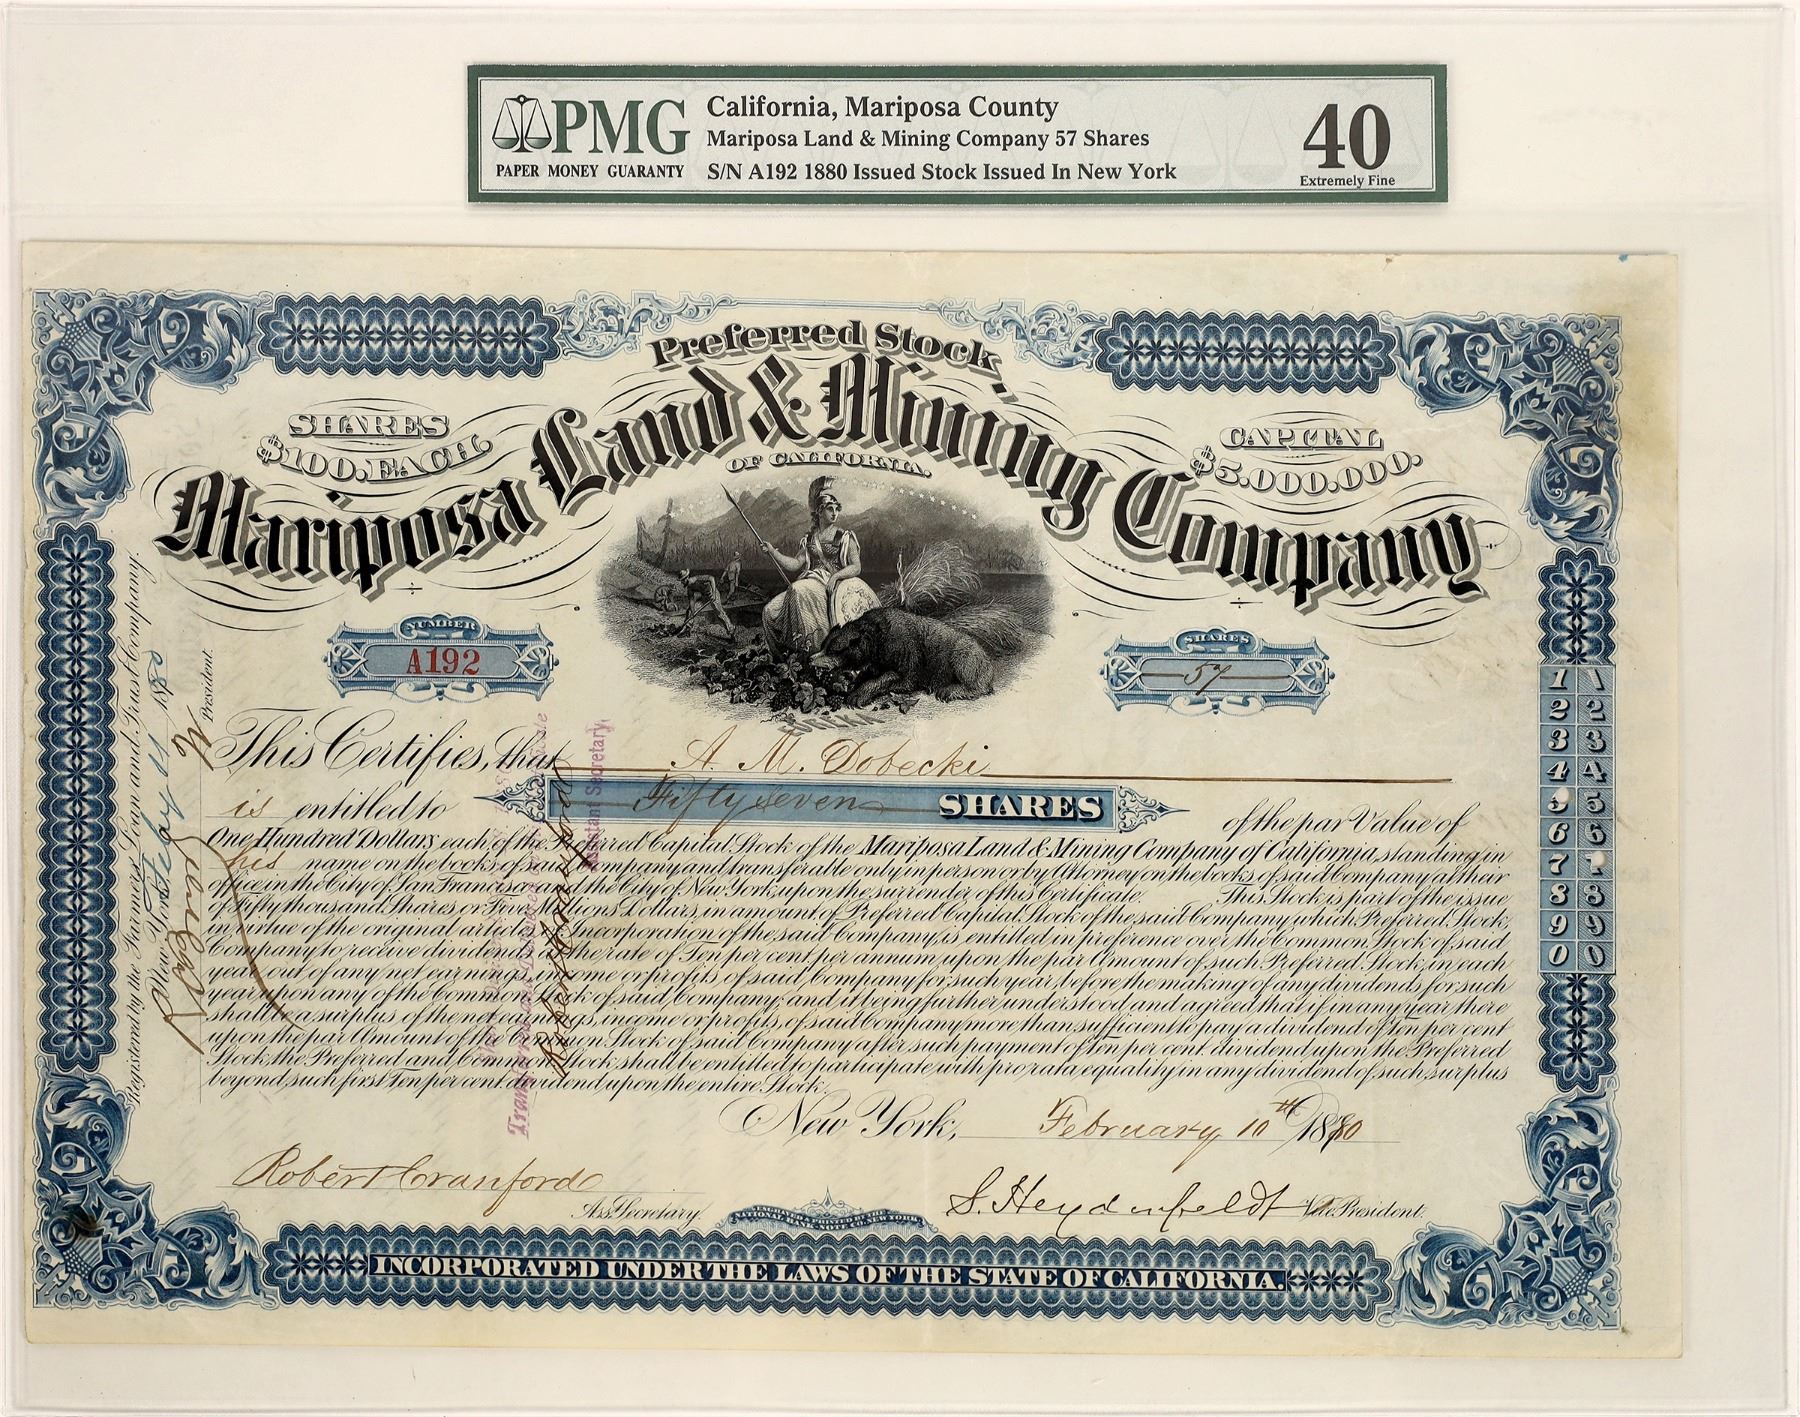 PMG
PAPER MONEY GUARANTY
California, Mariposa County
Mariposa Land & Mining Company 57 Shares
S/N A192 1880 Issued Stock Issued In New York
40
Extremely Fine
Preferred Stock,
Mariposa Land & Mining Company
OF CALIFORNIA.
SHARES
$100. EACH.
CAPITAL
$5.000.000.
NUMBER
A192
SHARES
57
This Certifies, that A. M. Dobecki
is entitled to Fifty seven SHARES of the par Value of
One Hundred Dollars each of the Preferred Capital Stock of the Mariposa Land & Mining Company of California, standing in
his name on the books of said Company and transferable only in person or by Attorney on the books of said Company at their
office in the City of San Francisco and the City of New York, upon the surrender of this Certificate. This Stock is part of the issue
of Fifty thousand Shares or Five Millions Dollars, in amount of Preferred Capital Stock of the said Company which Preferred Stock,
in virtue of the original articles of Incorporation of the said Company, is entitled in preference over the Common Stock of said
Company to receive dividends at the rate of Ten per cent per annum, upon the par Amount of such Preferred Stock, in each
year out of any net earnings, income or profits of said Company for such year, before the making of any dividends for such
year upon any of the Common Stock of said Company; and it being further understood and agreed that if in any year there
shall be a surplus of the net earnings, income or profits, of said Company more than sufficient to pay a dividend of ten per cent
upon the par Amount of the Common Stock of said Company after such payment of ten per cent. dividend upon the Preferred
Stock, the Preferred and Common Stock shall be entitled to participate with pro rata equality in any dividend of such surplus
beyond such first Ten per cent dividend upon the entire Stock.
New York, February 10th 1880
Robert Cranford
Ass. Secretary.
S. Heydenfeldt
Vice President.
INCORPORATED UNDER THE LAWS OF THE STATE OF CALIFORNIA.
Registered by the Farmers Loan and Trust Company.
New York
President.
Assistant Secretary
Robert Cranford
1 1
2 2
3 3
4 4
5 5
6 6
7 7
8 8
9 9
0 0